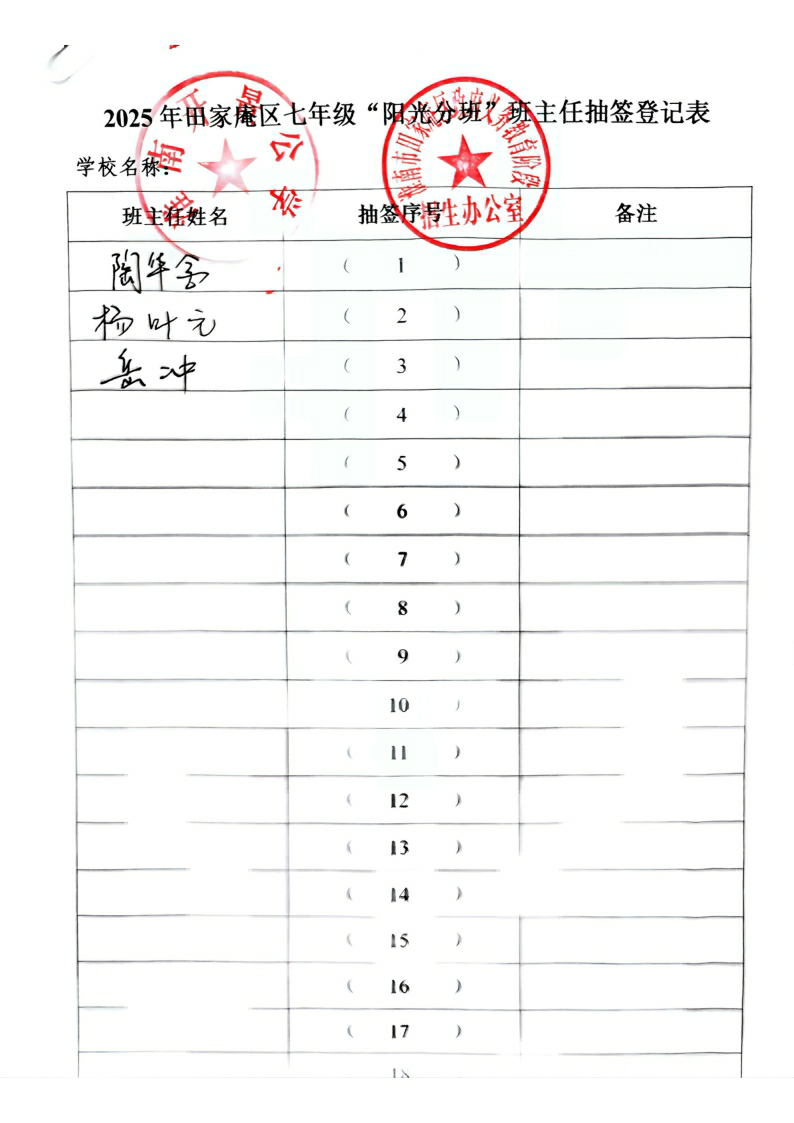 2025年田家庵区七年级“阳光分班”班主任抽签登记表
学校名称：
班主任姓名 抽签序号 备注
陶华 ( 1 )
杨叶元 ( 2 )
岳冲 ( 3 )
( 4 )
( 5 )
( 6 )
( 7 )
( 8 )
( 9 )
10 )
( 11 )
( 12 )
( 13 )
( 14 )
( 15 )
( 16 )
( 17 )
18
淮南市田家庵区义务教育阶段
招生办公室